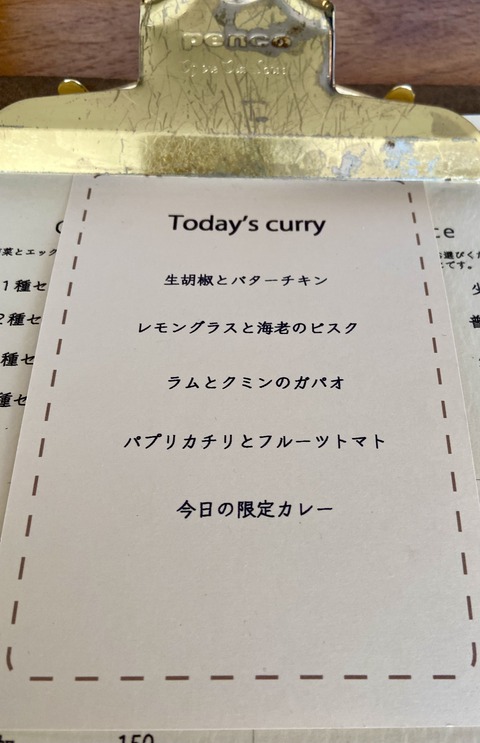 penco
Today's curry
生胡椒とバターチキン
レモングラスと海老のビスク
ラムとクミンのガパオ
パプリカチリとフルーツトマト
今日の限定カレー
1種セ
2種セ
種セ
種セ
150